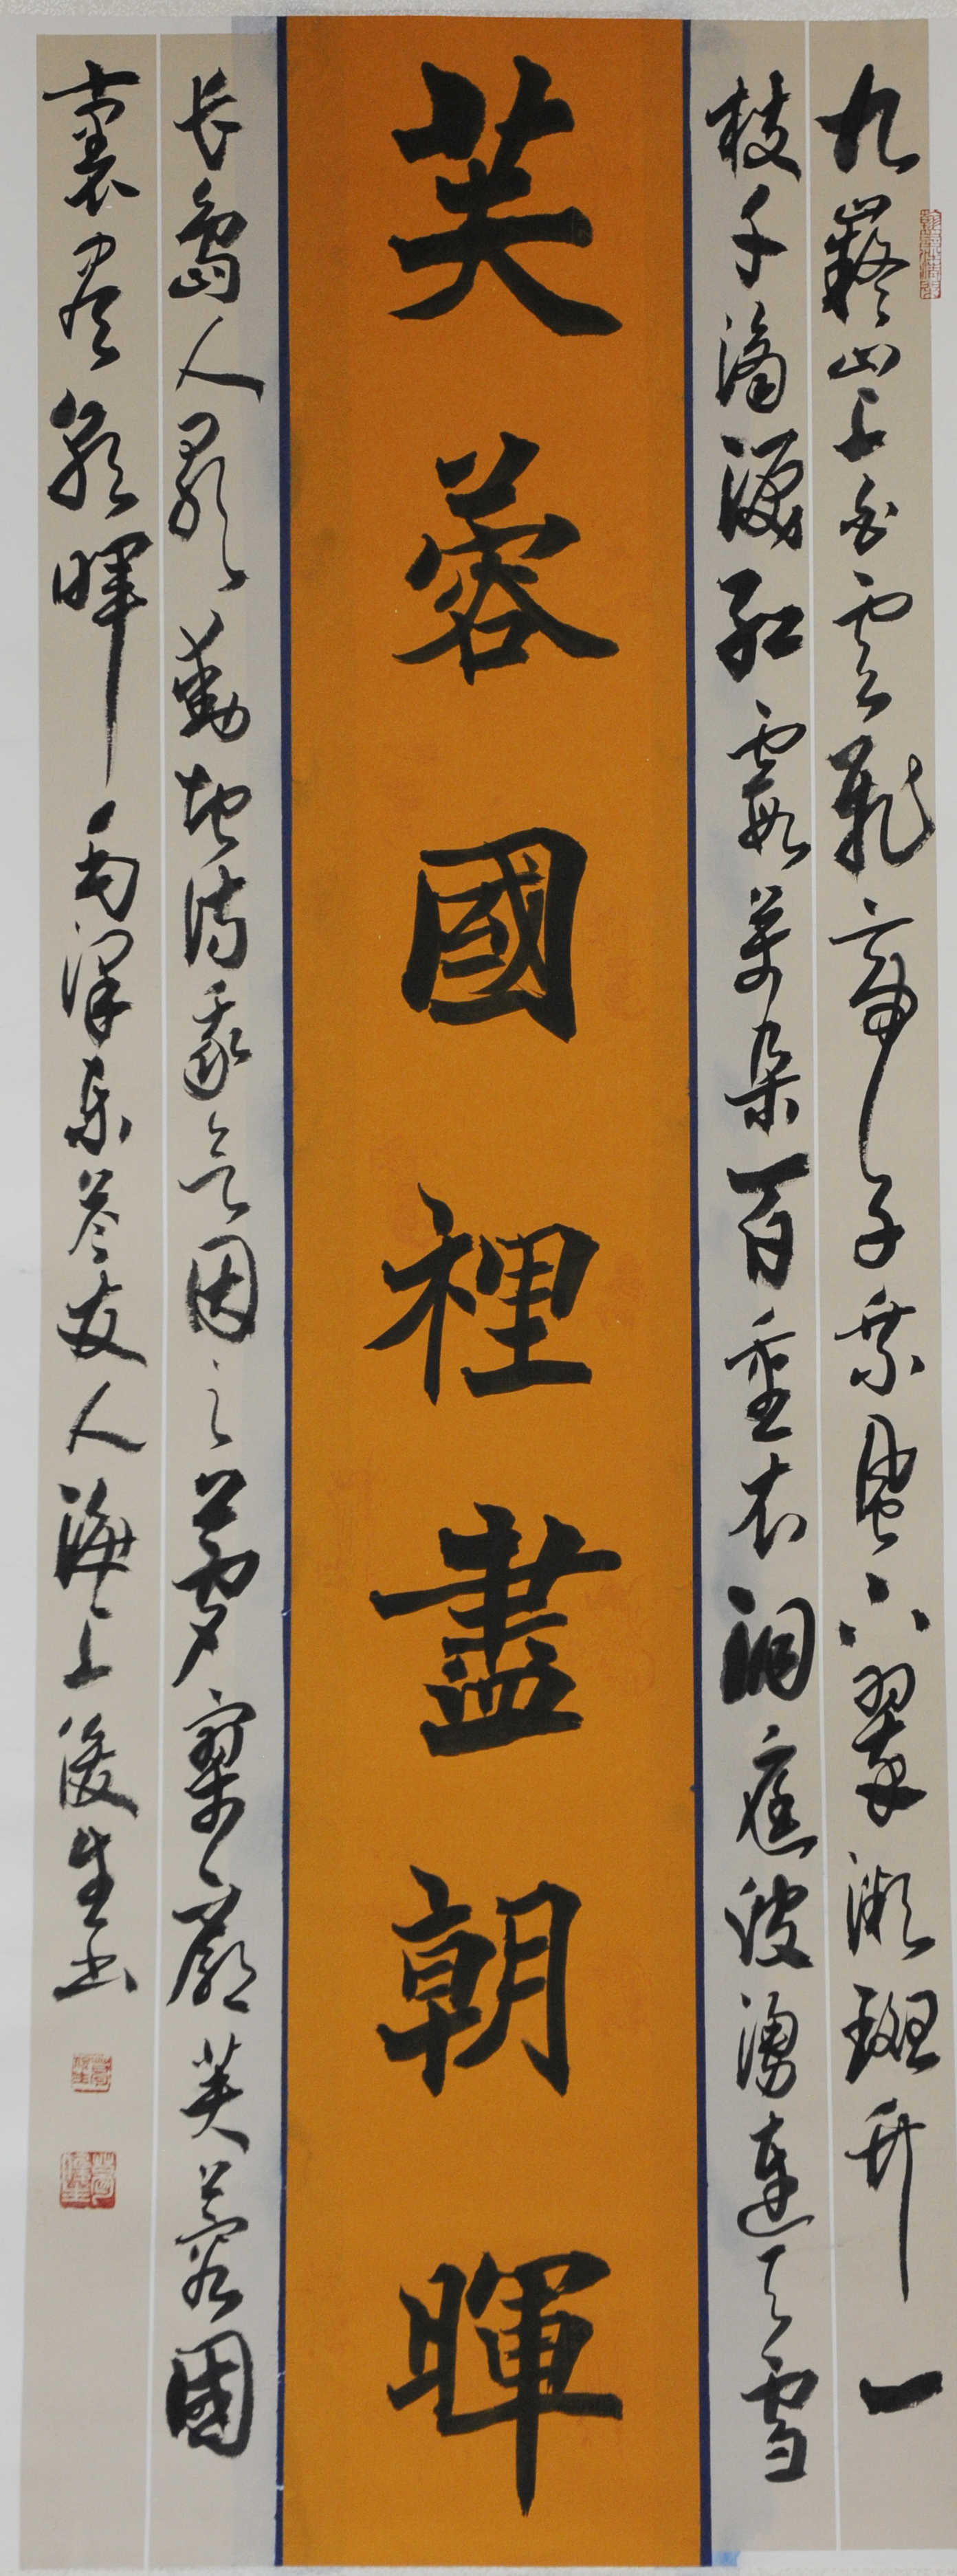 九嶷山上白雲飛帝子乘風下翠微斑竹一
枝千滴淚紅霞萬朵百重衣洞庭波湧連天雪
芙蓉國裡盡朝暉
长島人歌動地詩我欲因之夢寥廓芙蓉國
裏盡朝暉毛澤东答友人海上俊生书